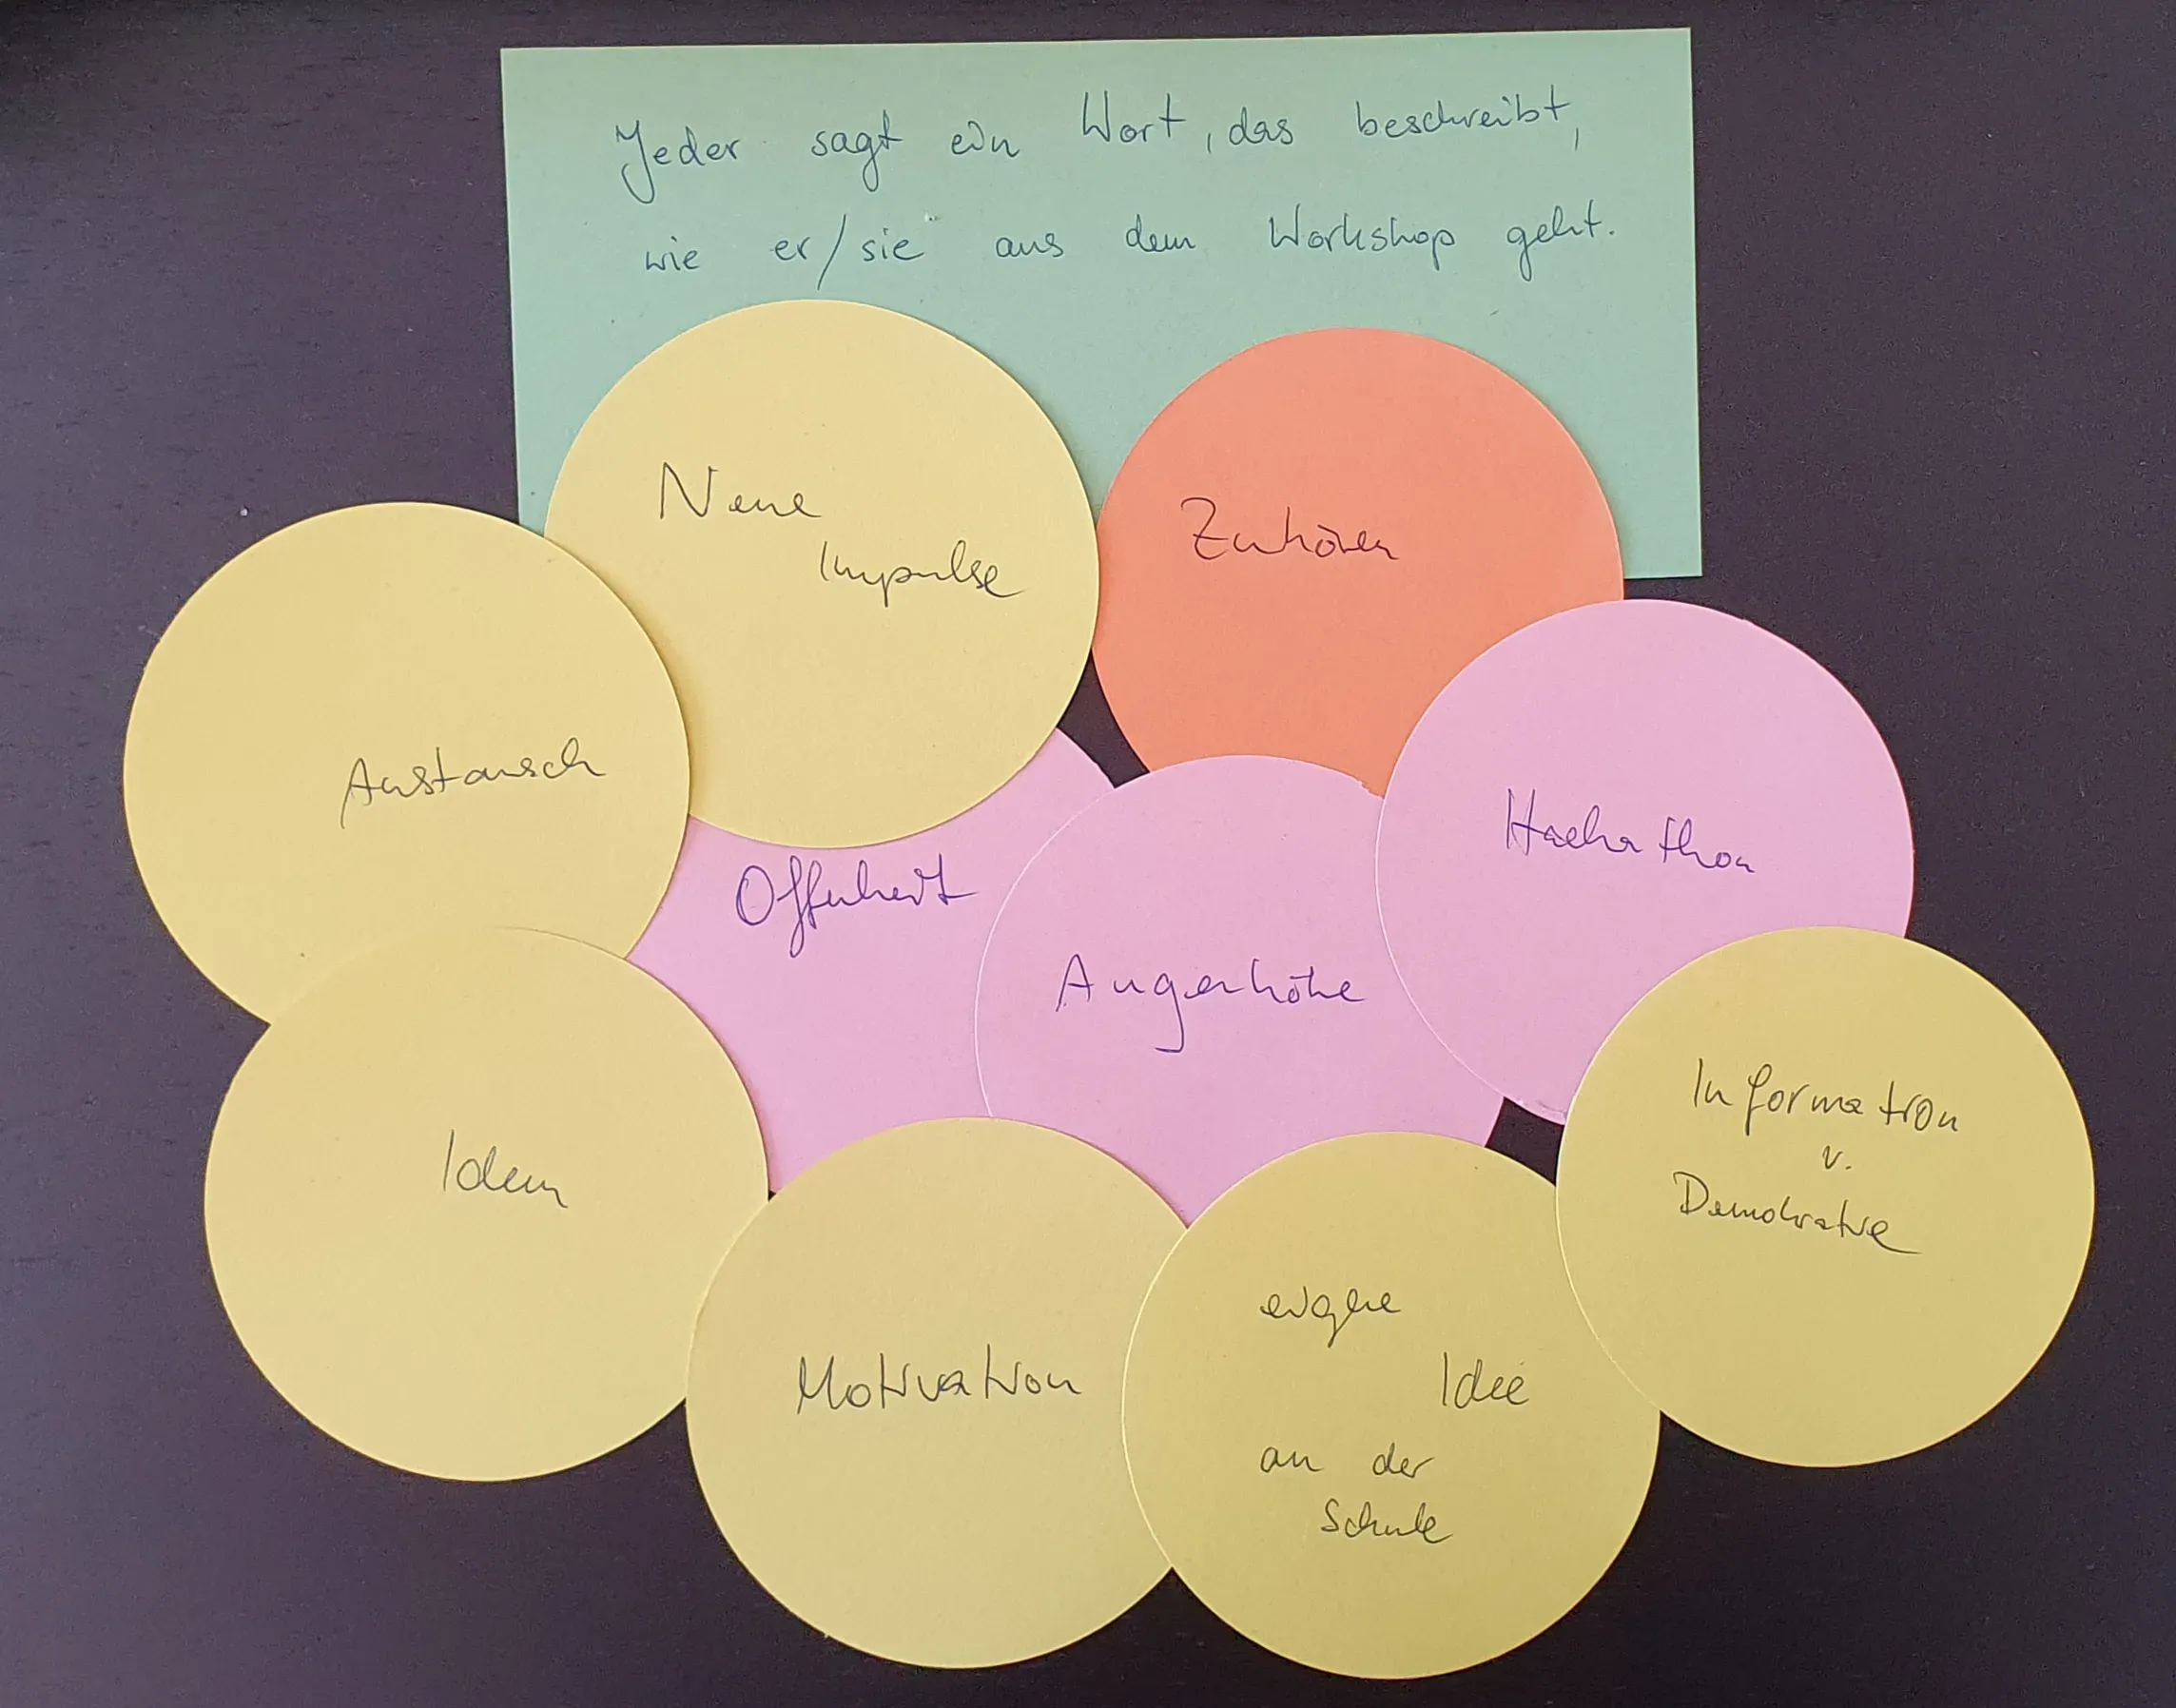 Jeder sagt ein Wort, das beschreibt,
wie er/sie aus dem Workshop geht.
Neue
Impulse
Zuhören
Austausch
Offenheit
Augenhöhe
Hackathon
Ideen
Motivation
eigene
Idee
an der
Schule
Information
v.
Demokratie